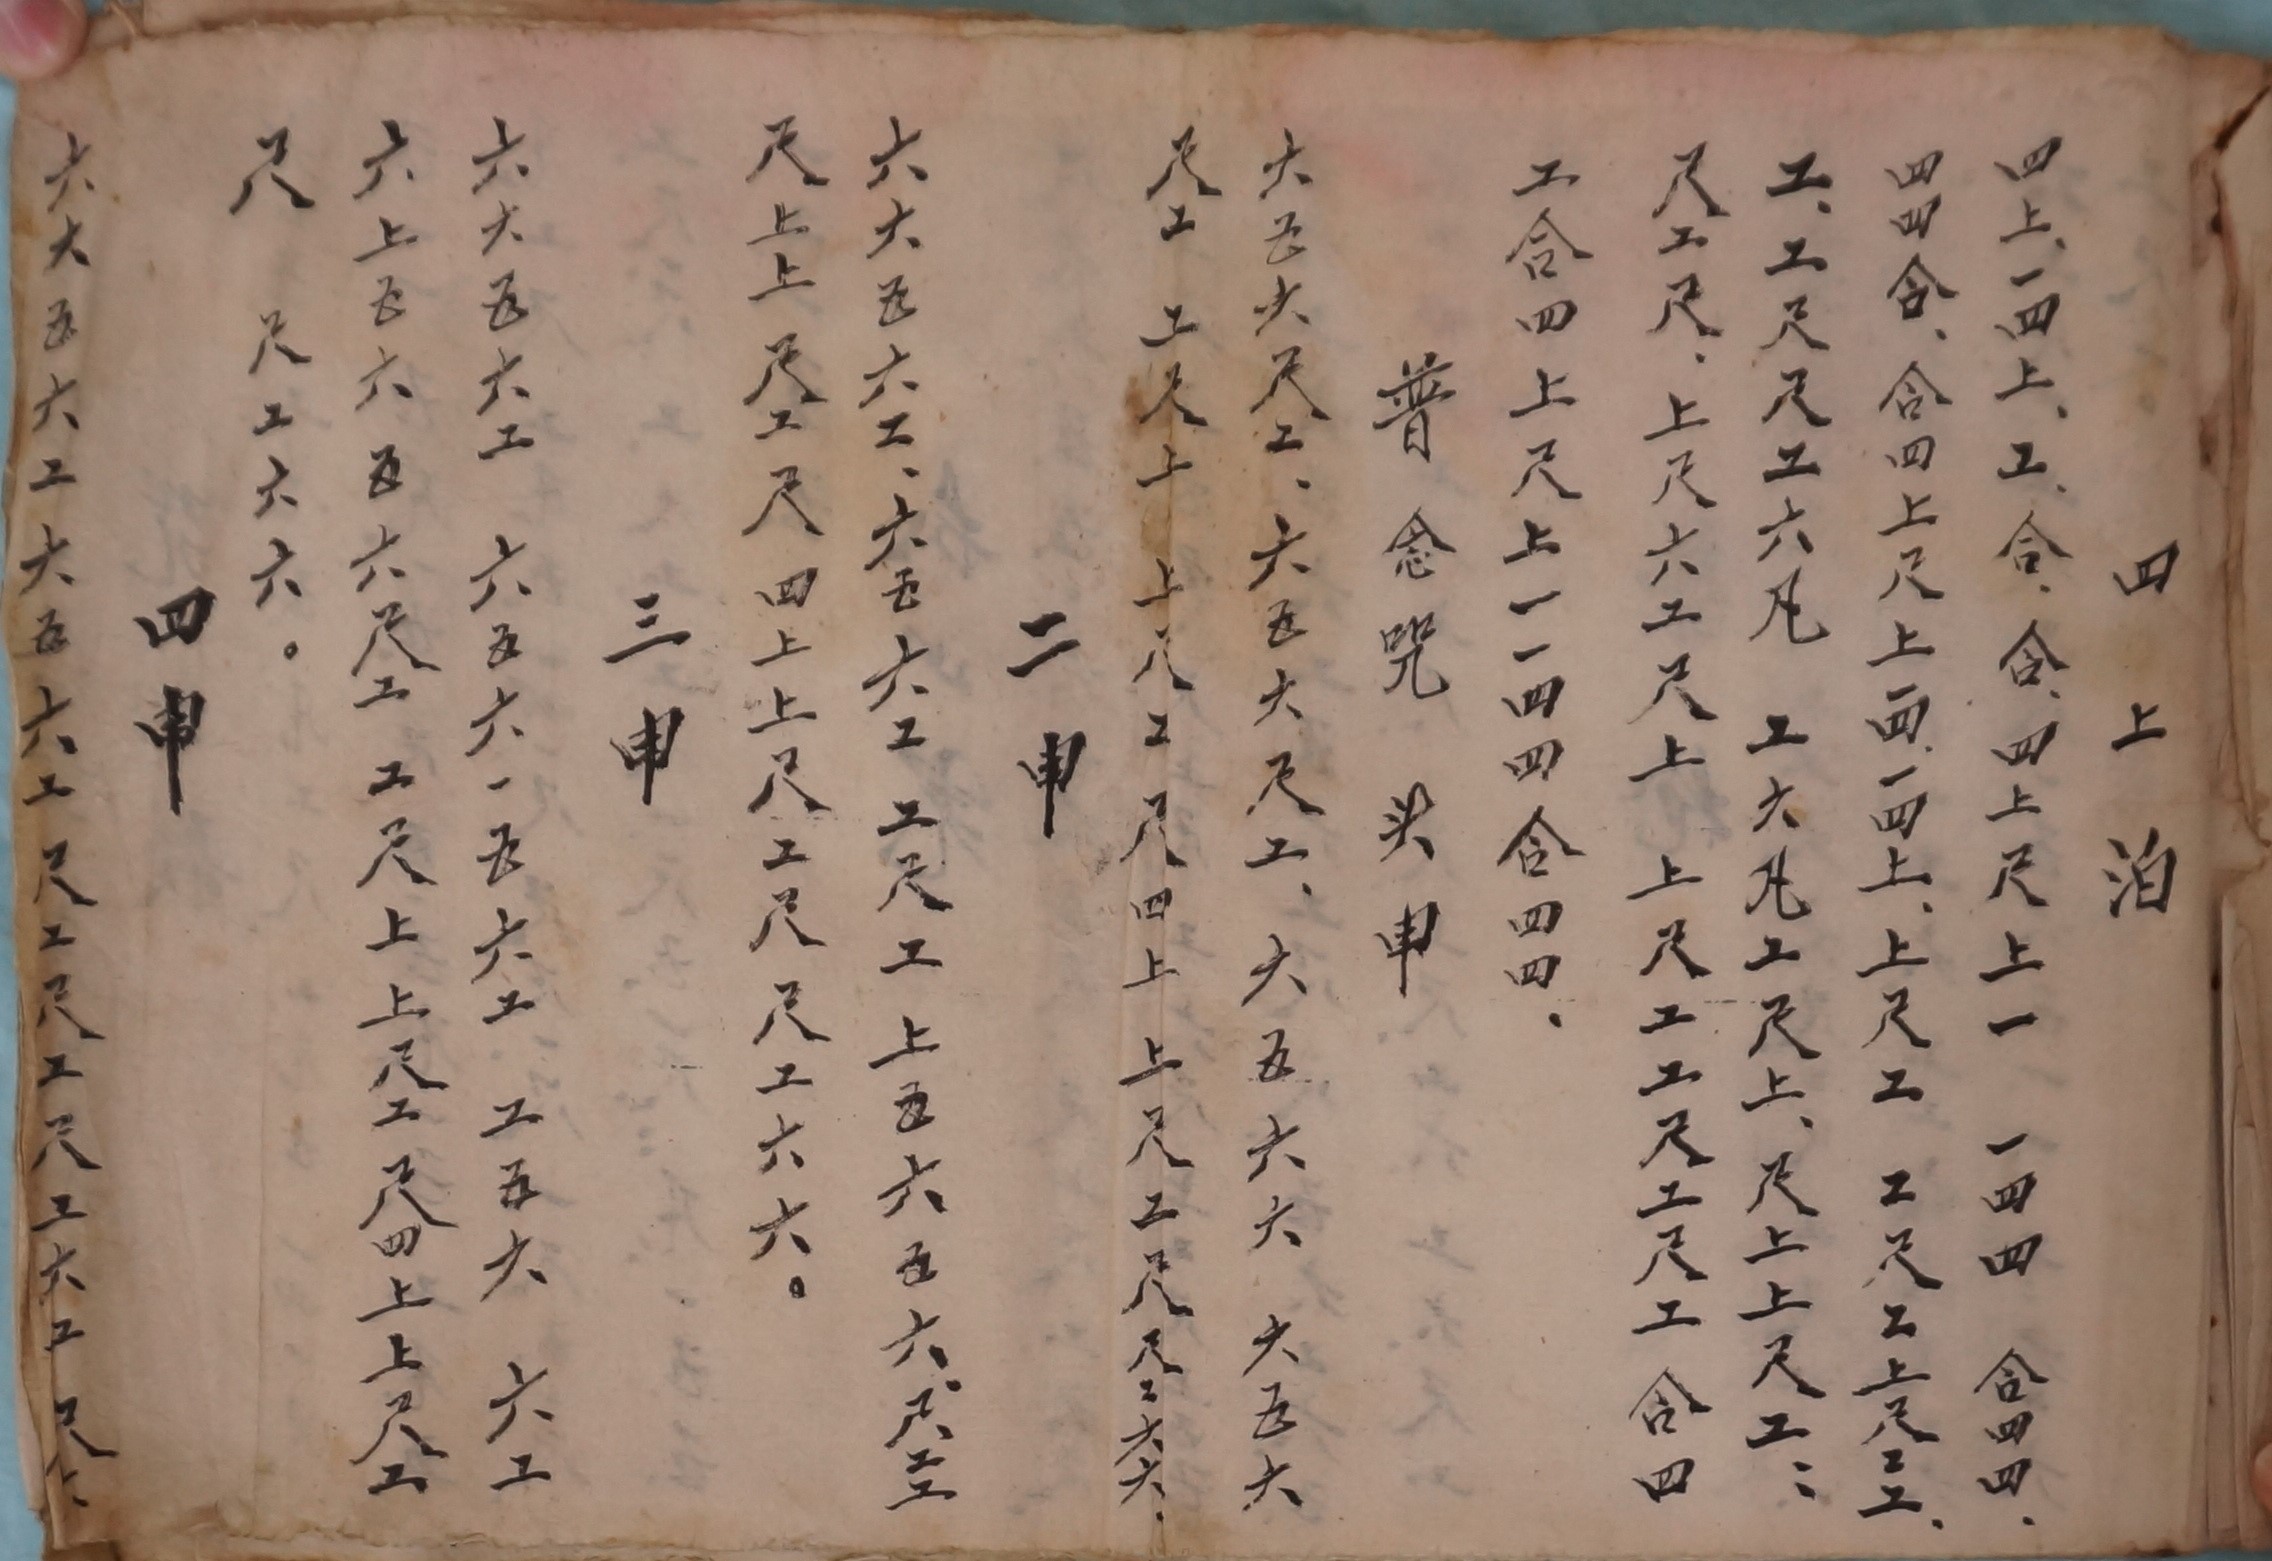 四上泊
四上、一四上、工、合、合、四上尺上一一四四合四四、
四四合、合四上尺上一四、一四上、上尺工工尺工上尺工工、
工、工尺尺工六凡工六凡工尺上、尺上上尺工、、
尺工尺、上尺六工尺上上尺工工尺工尺工合四
工合四上尺上一一四四合四四、
普念咒头申
六五六尺工、六五六尺工、六五六六六五六
尺工工尺上上尺工尺四上上尺工尺尺工六六、
二申
六六五六工、六五六工工尺工上五六五六、尺工工
尺上上尺工尺四上上尺工尺尺工六六。
三申
六六五六工六五六一五六工工五六六工
六上五六五六尺工工尺上上尺工尺四上上尺工
尺尺工六六。
四申
六六五六工六五六工尺工尺工尺工六工尺上、